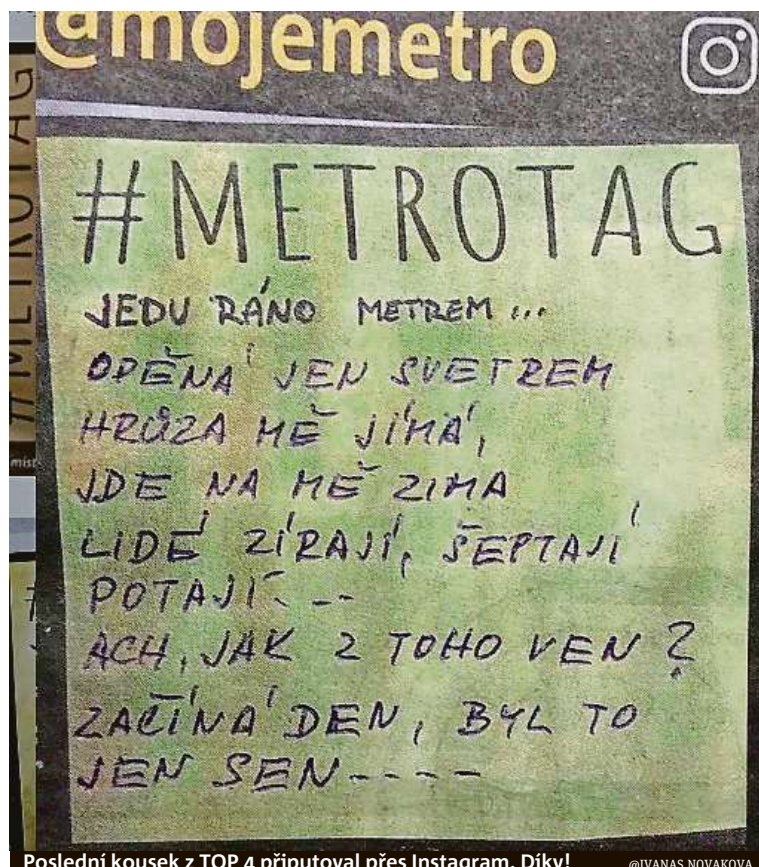 @mojemetro
#METROTAG
JEDU RÁNO METREM...
ODĚNÁ JEN SVETREM
HRŮZA MĚ JÍMÁ,
JDE NA MĚ ZIMA
LIDÉ ZÍRAJÍ, ŠEPTAJÍ
POTAJÍ---
ACH, JAK Z TOHO VEN?
ZAČÍNÁ DEN, BYL TO
JEN SEN----
Poslední kousek z TOP 4 připutoval přes Instagram. Díky! @IVANAS.NOVAKOVA